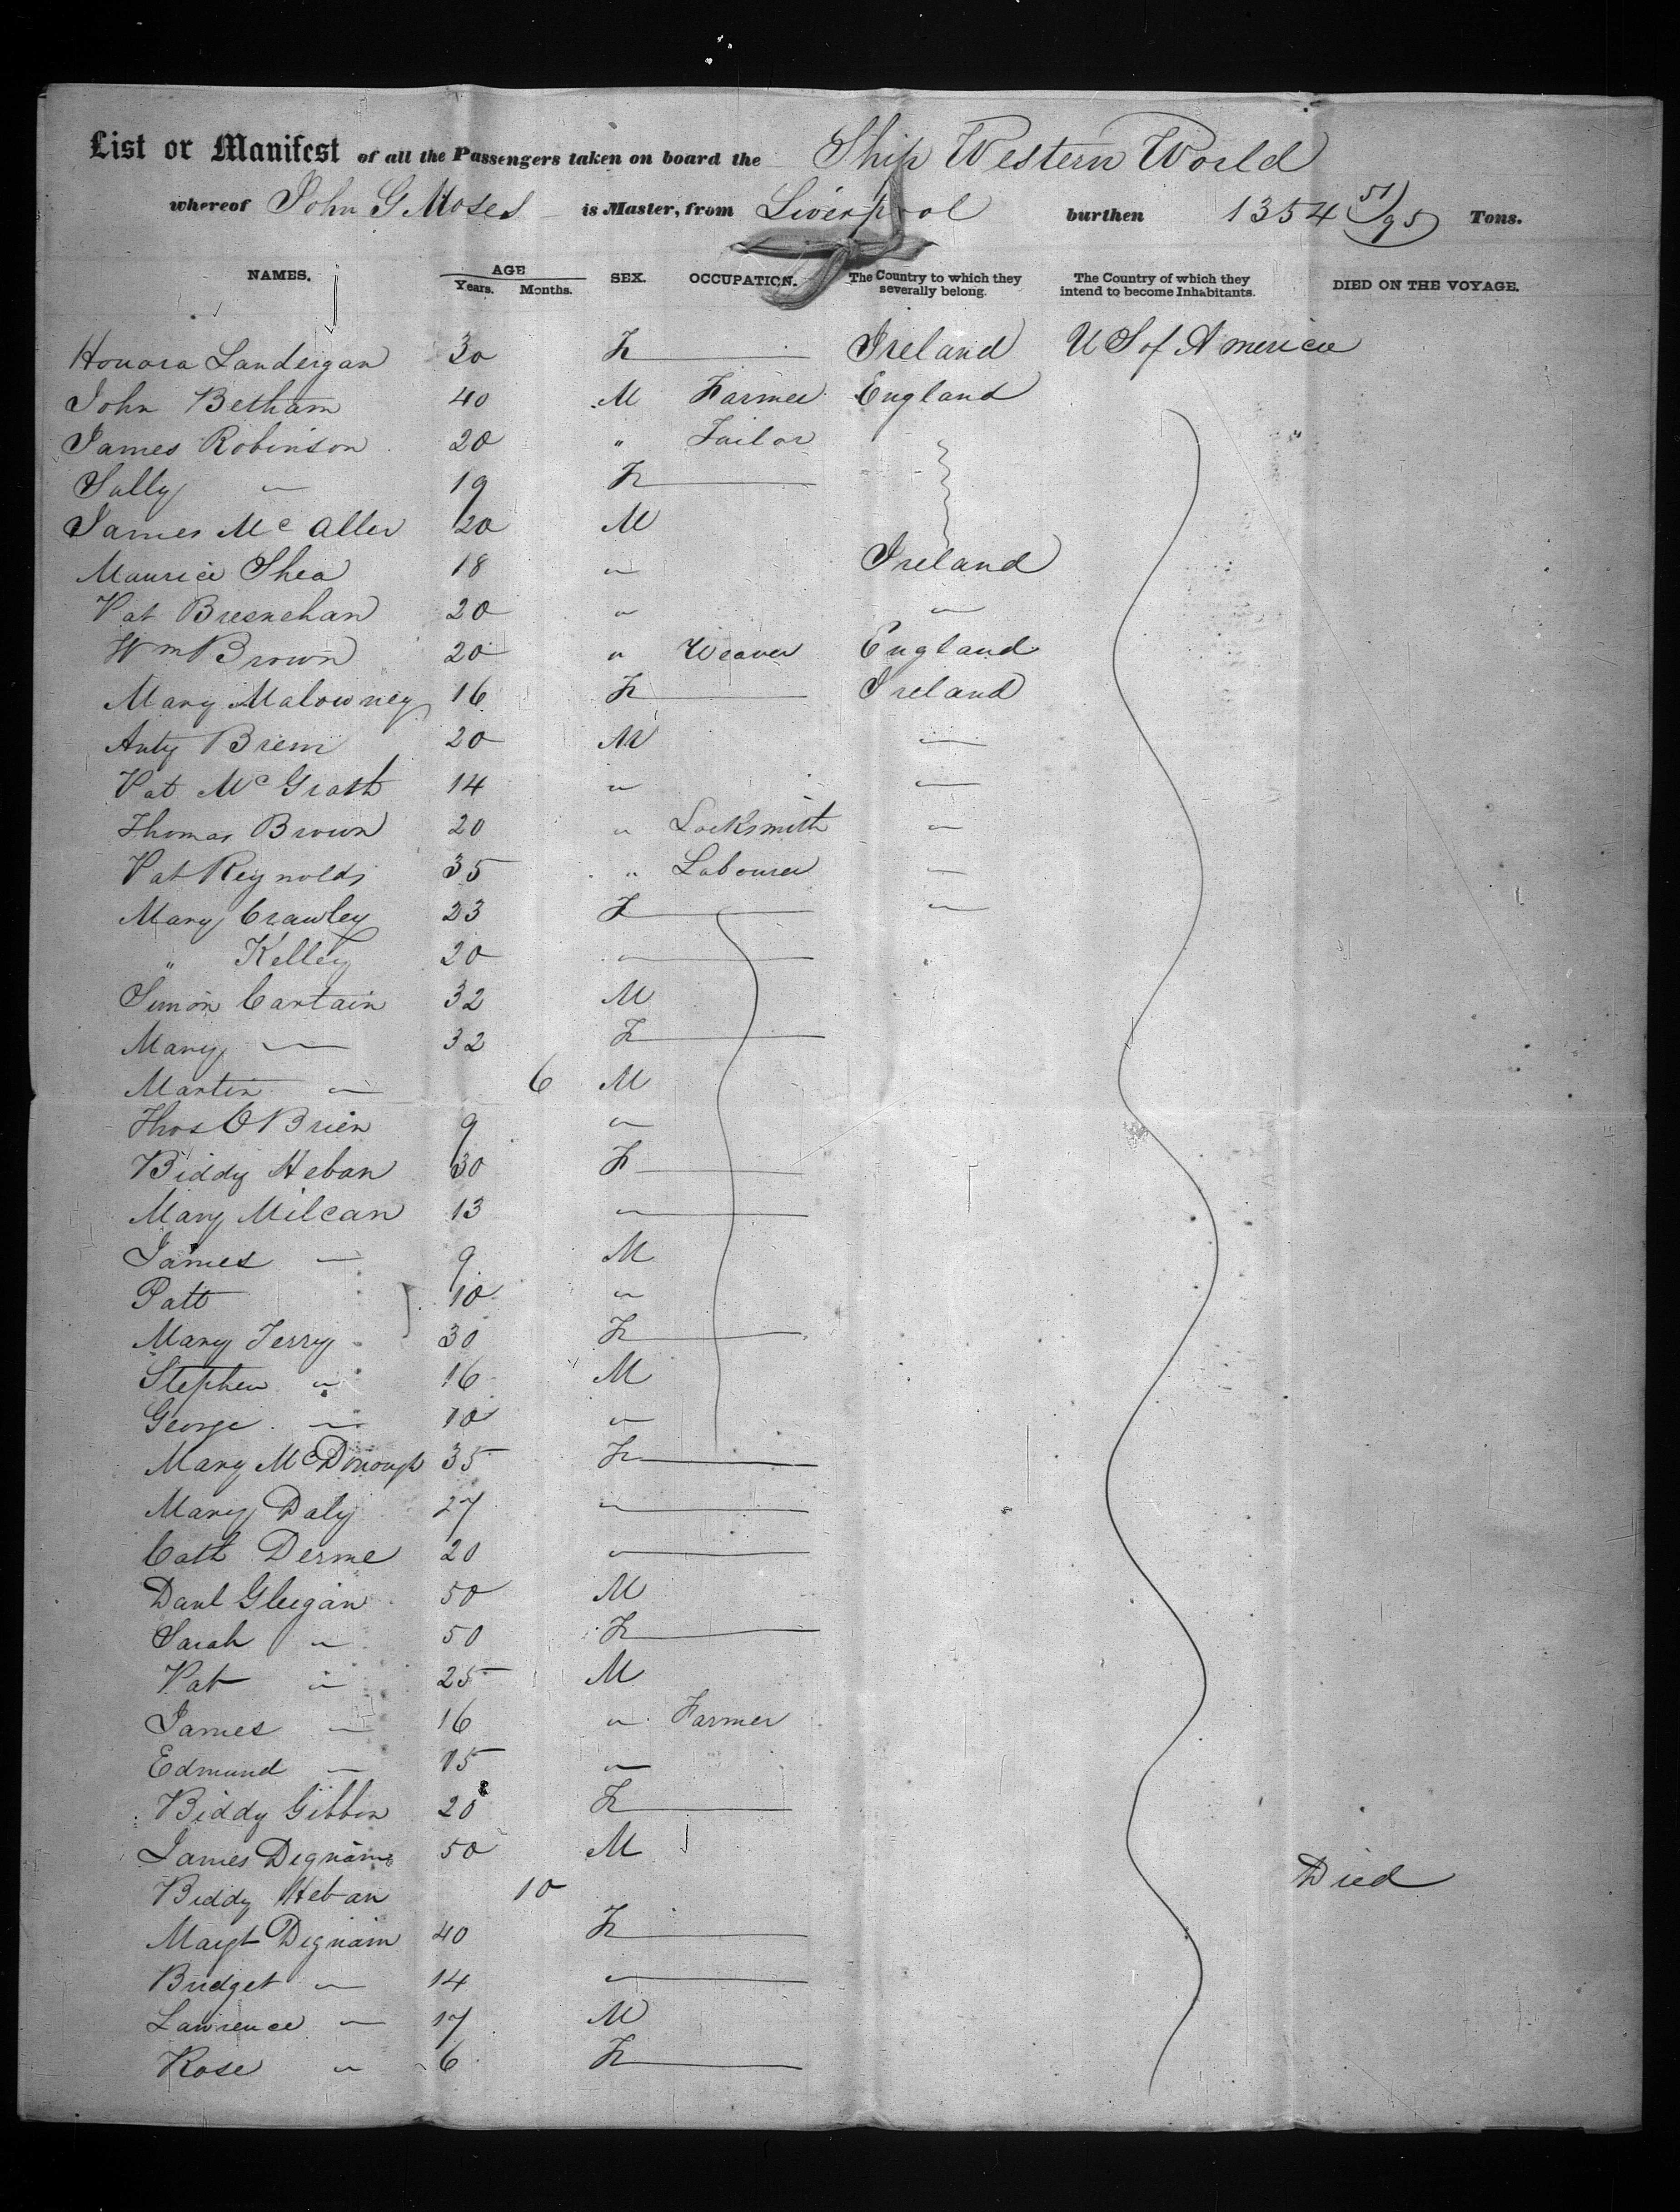 List or Manifest of all the Passengers taken on board the Ship Western World
whereof John G Moses is Master, from Liverpool burthen 1354 51/95 Tons.
NAMES. AGE SEX. OCCUPATION. The Country to which they severally belong. The Country of which they intend to become Inhabitants. DIED ON THE VOYAGE.
Years. Months.
Honora Landergan 30 F Ireland U S of America
John Betham 40 M Farmer England
James Robinson 20 " Tailor
Sally " 19 F
James McAller 20 M
Maurice Shea 18 " Ireland
Pat Bresnehan 20 " "
Wm Brown 20 " Weaver England
Mary Malowney 16 F Ireland
Anty Brem 20 M "
Pat McGrath 14 " "
Thomas Brown 20 " Locksmith "
Pat Reynolds 35 " Labourer "
Mary Crawley 23 F "
" Kelley 20 "
Simon Cartain 32 M
Mary " 32 F
Martin " 6 M
Thos O Brien 9 "
Biddy Heban 30 F
Mary Milcan 13 "
James " 9 M
Patt 10 "
Mary Terry 30 F
Stephen " 16 M
George " 10 "
Mary McDonough 35 F
Mary Daly 27 "
Cath Derme 20 "
Danl Gleegan 50 M
Sarah " 50 F
Pat " 25 M
James " 16 " Farmer
Edmund " 15 "
Biddy Gibbon 20 F
James Dignam 50 M
Biddy Heban 10 Died
Margt Dignam 40 F
Bridget " 14 "
Lawrence " 17 M
Rose " 6 F